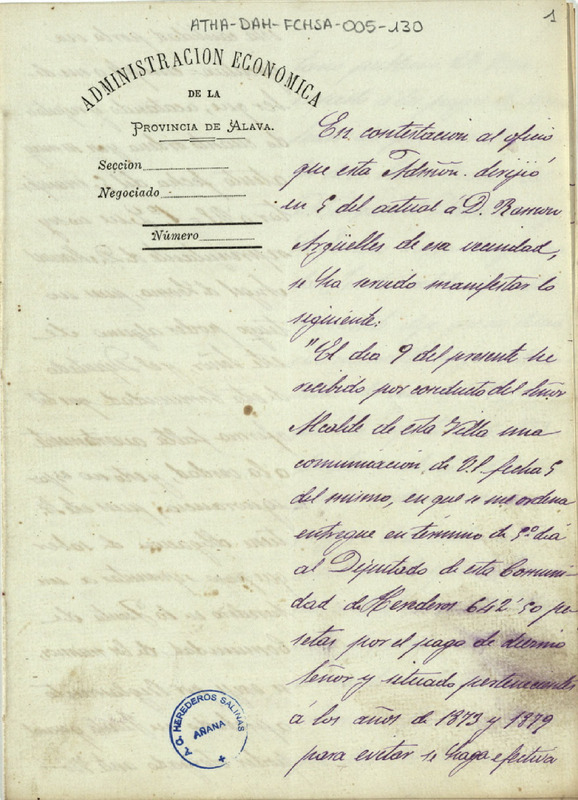 ATHA-DAH-FCHSA-005-130
1
ADMINISTRACION ECONÓMICA
DE LA
PROVINCIA DE ALAVA.
Seccion
Negociado
Número
En contestacion al oficio
que esta Admón. dirijió
en 5 del actual á D. Ramon
Argüelles de esa vecindad,
se ha servido manifestar lo
siguiente:
"El dia 9 del presente he
recibido por conducto del Señor
Alcalde de esta Villa una
comunicacion de V.S. fecha 5
del mismo, en que se me ordena
entregue en término de 5º dia
al Diputado de esta Comuni-
dad de Herederos 642'50 pe-
setas por el pago de diezmo
Señor y situado pertenecientes
á los años de 1873 y 1879
para evitar se haga efectiva
HEREDEROS SALINAS
AÑANA